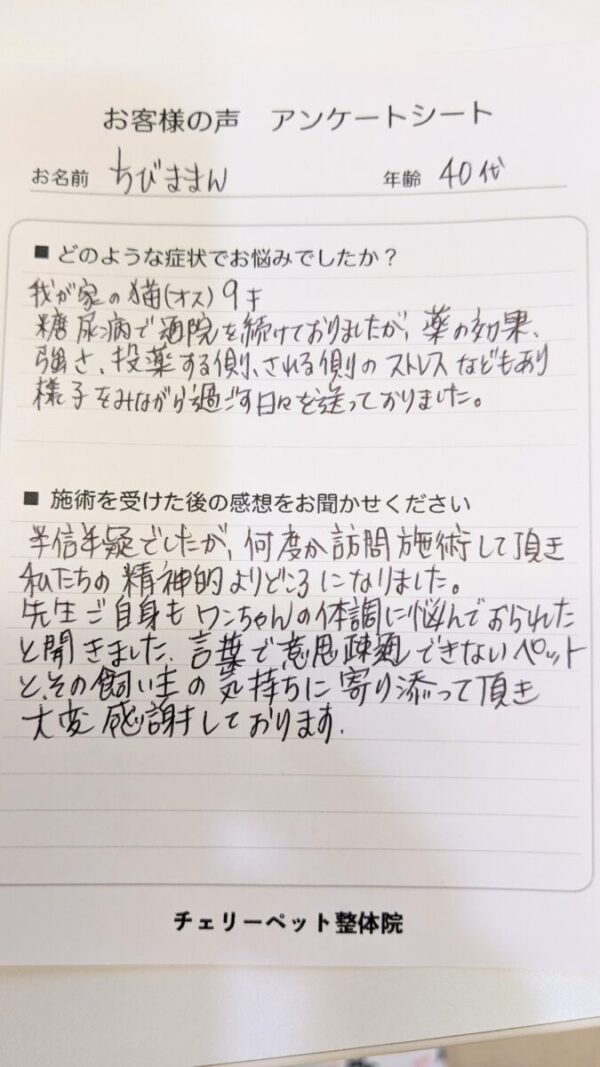 お客様の声 アンケートシート
お名前 ちびままん 年齢 40代
■ どのような症状でお悩みでしたか？
我が家の猫(オス)9才
糖尿病で通院を続けておりましたが、薬の効果、
強さ、投薬する側、される側のストレスなどもあり
様子をみながら過ごす日々を送っておりました。
■ 施術を受けた後の感想をお聞かせください
半信半疑でしたが、何度か訪問施術して頂き
私たちの精神的よりどころになりました。
先生ご自身もワンちゃんの体調に悩んでおられた
と聞きました、言葉で意思疎通できないペット
と、その飼い主の気持ちに寄り添って頂き
大変感謝しております。
チェリーペット整体院